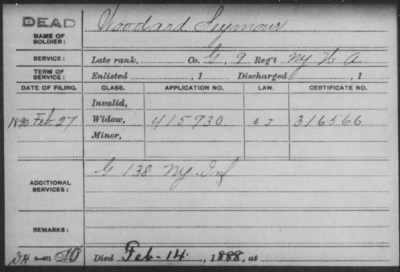 DEAD
NAME OF SOLDIER: Woodard Seymour
SERVICE: Late rank, Co. G, 9 Reg't NY H A.
TERM OF SERVICE: Enlisted , 1 Discharged , 1
DATE OF FILING. CLASS. APPLICATION NO. LAW. CERTIFICATE NO.
Invalid,
1890 Feb 27 Widow, 415730 316566
Minor,
ADDITIONAL SERVICES: G 138 NY Inf
REMARKS:
Died Feb. 14, 1888, at